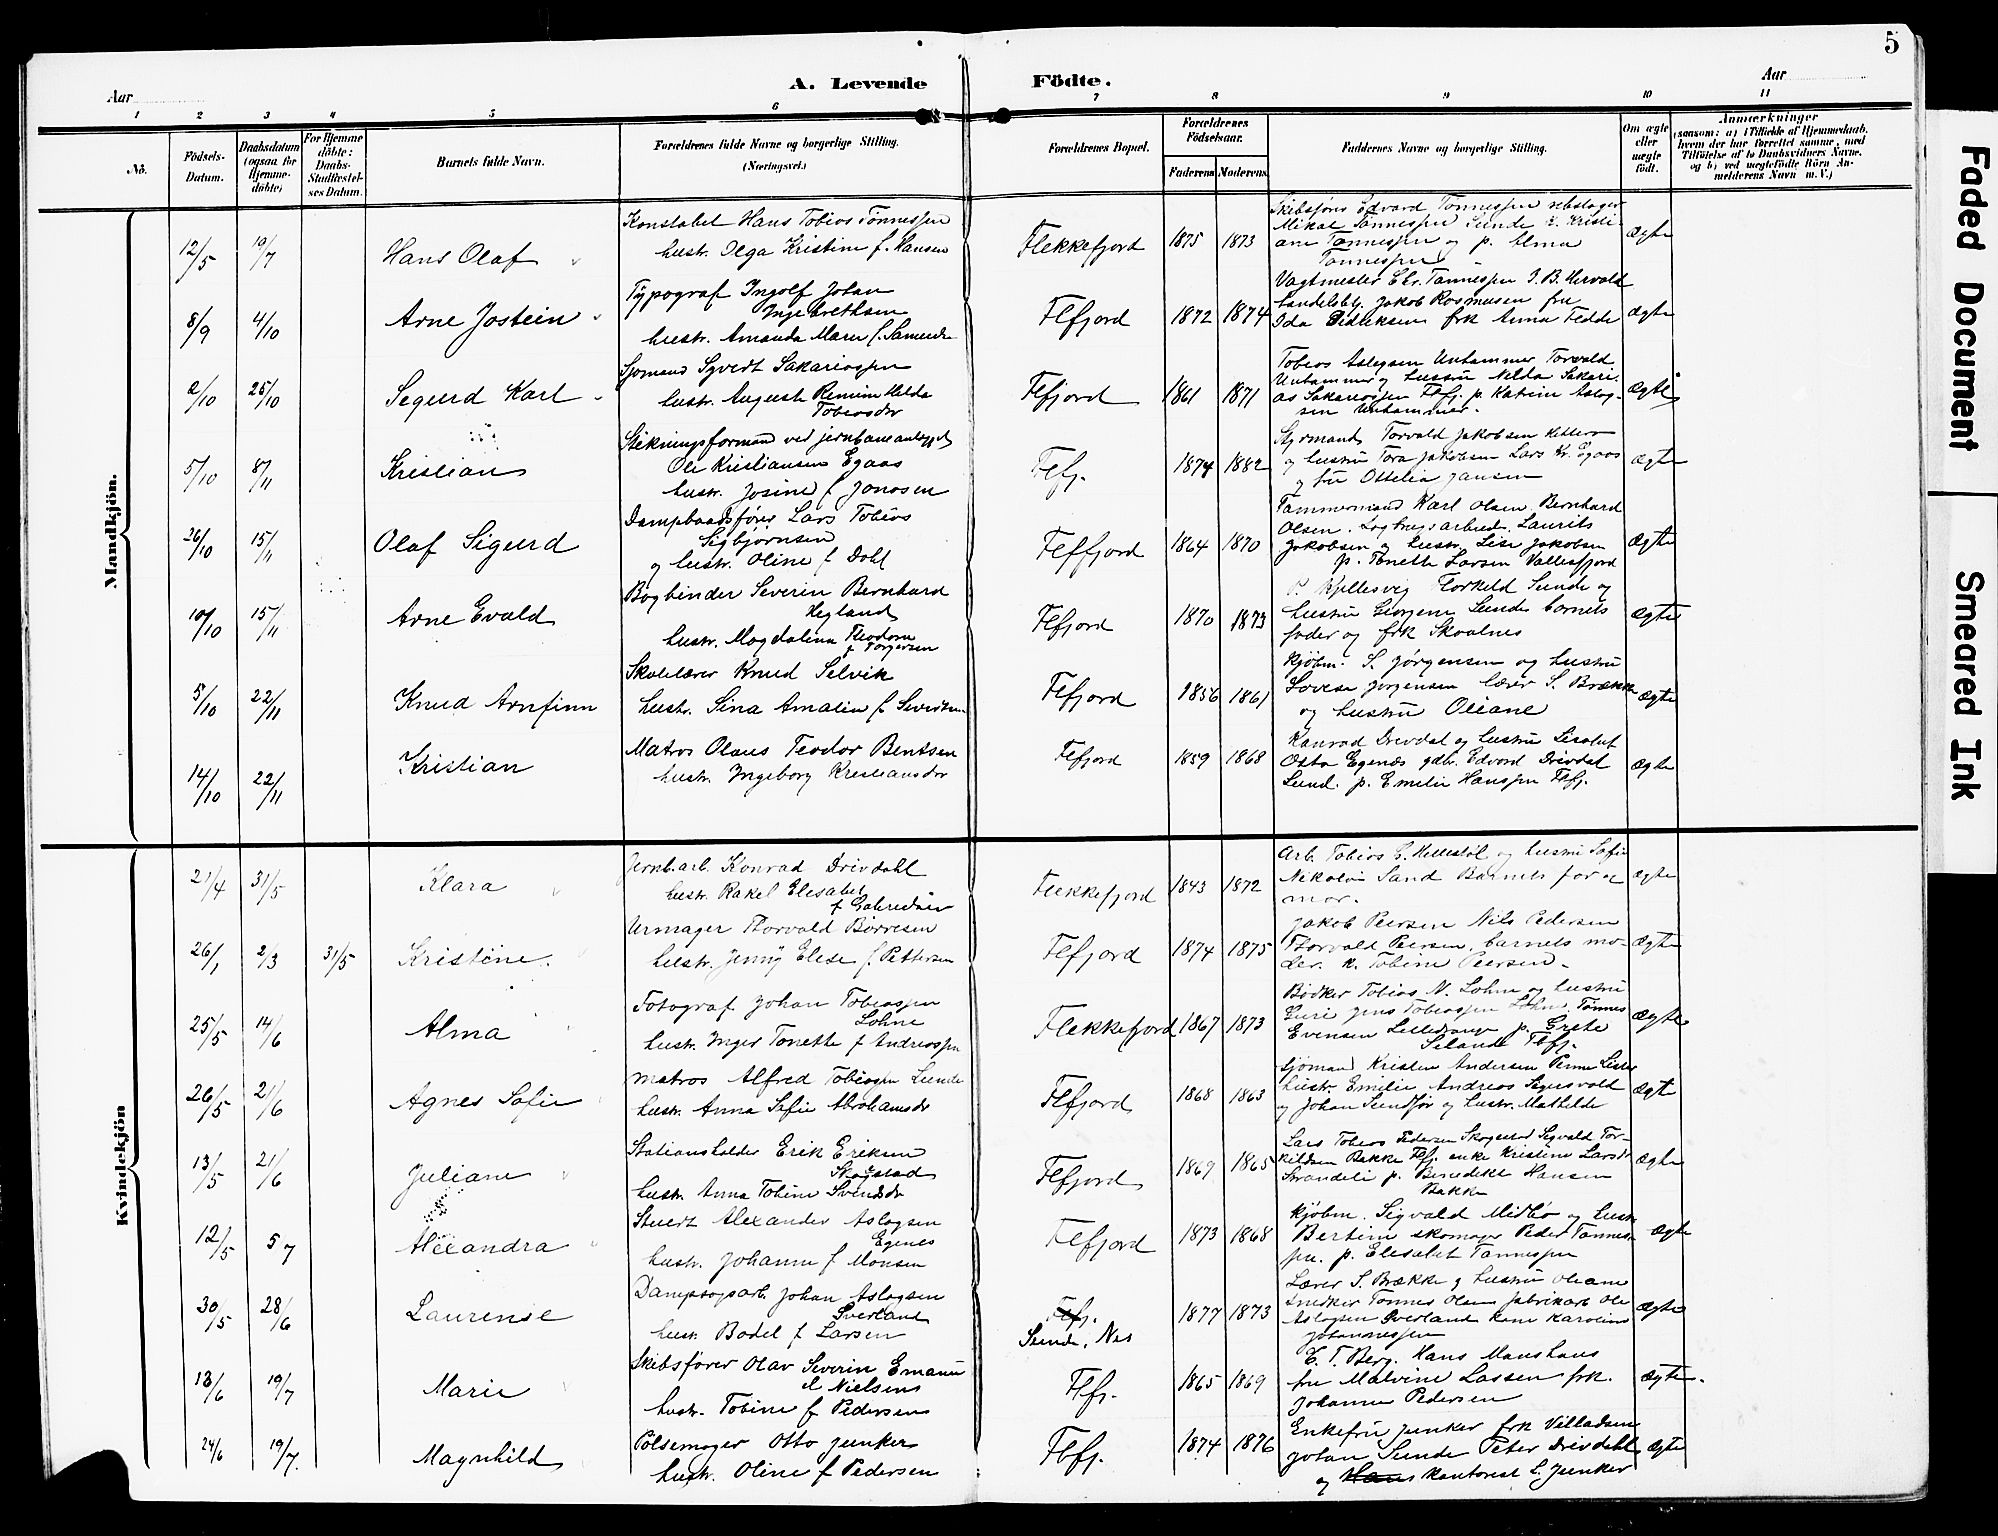 5
A. Levende Födte.
Aar
Aar
1 2 3 4 5 6 7 8 9 10 11
Nô.
Födsels-Datum.
Daabsdatum (ogsaa for Hjemme-döbte)
For Hjemme döbte: Daabs-Stadfæstelses Datum.
Barnets fulde Navn.
Forældrenes fulde Navne og borgerlige Stilling. (Næringsvei.)
Forældrenes Bopæl.
Forældrenes Födselsaar.
Faderens. Moderens.
Faddernes Navne og borgerlige Stilling.
Om ægte eller uægte födt.
Anmærkninger
(saasom: a) i Tilfælde af Hjemmedaab, hvem der har forrettet samme, med Tilföielse af to Daabsvidners Navne, og b) ved uægtefödte Börn Anmelderens Navn m. V.)
Mandkjön.
12/5 19/7 Hans Olaf
Konstabel Hans Tobias Tønnessen
hustr. Olga Kristine f. Hansen
Flekkefjord 1875 1873
Skibsførs Edvard Tønnessen rebslager
Mikal Tønnessen Sunde k. Kristi-
ane Tønnessen og p. Alma
Tønnessen
Ægte
8/9 4/10 Arne Jostein
Typograf Ingolf Johan
Ingebrethsen
hustr. Amanda Marie f.
Flfjord 1872 1874
Vagtmester Chr. Tønnessen I. B. Hervold
handelsbtj. Jakob Rosmusen fru
Ida Didriksen frk Anna Fedde
Ægte
2/10 25/10 Segurd Karl
Sjømand Syvert Sakariassen
hustr. Auguste
Tobiasdr
Flfjord 1861 1871
Tobias Aslagsen Unhammer Torvald
Unhammer og hustru Nelda Sakari-
as Sakariassen Flfj. p. Katrine Aslag-
sen Unhammer.
Ægte
5/10 8/11 Kristian
Stikningsformand ved jernbaneanlægget
Ole Kristiansen Egaas
hustr. Josine f Jonasen
Flfj. 1874 1882
Styrmand Torvald Jakobsen
og hustru Tora Jakobsen Lars Kr. Egaas
og fru Ottelia Jansen
Ægte
26/10 15/11 Olaf Sigurd
Dampbaadsfører Lars Tobias
Sigbjørnsen
og hustr. Oline f Dahl
Flffjord 1864 1870
Tømmermand Karl Olsen Bernhard
Olsen. Laurits
Jakobsen og hustr. Lise Jakobsen
p. Tonette Larsen
Ægte
10/10 15/11 Arne Evald
Bogbinder Severin Bernhard
Hegland
hustr. Magdalina Theodora
f Torgersen
Flfjord 1870 1873
P. Kjellesvig Torkeld Sunde og
hustru Georgene Sunde barnets
fader og frk Skoalnes
Ægte
5/10 22/11 Knud Arnfinn
Skolelærer Knud Selvik
hustr. Sina Amalia f Sivertsen
Flfjord 1856 1861
Kjøbm. S. Jørgensen og hustru
Lovise Jørgensen lærer S. Brække
og hustru Oliane
Ægte
14/10 22/11 Kristian
Matros Olaus Teodor Bentsen
hustr. Ingeborg Kristiansdr
Flfjord 1859 1868
Konrad Drivdal og hustru Lisabet
Otto Egenæs gdbr. Edvard Drivdal
Lund. p. Emilie Hanssen Flfj.
Ægte
Kvindekjön
21/4 31/5 Klara
Jernb.arb. Konrad Drivdahl
hustr. Rakel Elesabet
f Gabrielsen
Flekkefjord 1843 1872
Arb. Tobias G. Hellestøl og hustru Sofie
Nikolai Sand Barnets far og
mor.
Ægte
26/1 2/3 31/5 Kristine.
Urmager Thorvald Børresen
hustr. Jenny Elise f. Pettersen
Flfjord 1874 1875
Jakob Peersen Nils Pedersen
Thorvald Peersen, barnets mo-
der. k. Tobine Peersen.
Ægte
25/5 14/6 Alma
Fotograf Johan Tobiassen
Lohne
hustr. Inger Tonette f Andreassen
Flekkefjord 1867 1873
Bødker Tobias N. Lohne og hustru
Guri Jens Tobiassen Lohne Tønnes
Evensen p. Grete
Selande Flfj.
Ægte
26/5 21/6 Agnes Sofie
matros Alfred Tobiassen Sunde
hustr. Anna Sofie Abrahamsdr
Flfjord 1868 1863
Sjømand Kristen Andersen
hustr. Emilie Andreas Sigersvold
og Johan Sundfør og hustr. Mathilde
Ægte
13/5 21/6 Juliane
Stationsholder Erik Eriksen
Skogstad
hustr. Anna Tobine Svendsdr
Flfjord 1869 1865
Lars Tobias Pedersen Skogestad Sigvald Tor-
kildsen Bakke Flfj. enke Kristine Larsdr
Strandeli p. Benedikte Hansen
Bakke
Ægte
12/5 5/7 Alexandra
Stuert Alexander Aslagsen
Egenes
hustr. Johanne f Monsen
Flfjord 1873 1868
Kjøbm. Sigvald Midbø og hustr
Bertine skomager Peder Tønnes-
sen. p. Elesabet Tønnessen
Ægte
30/5 28/6 Laurense
Dampsagsarb. Johan Aslagsen
Sverland
hustr. Bodel f Larsen
Flfj.
Sunde, Nes 1877 1873
Lærer S. Brække og hustru Oliane
Snedker Tønnes Olsen fabrikarb Ole
Aslagsen Øverland kone Karoline
Johannessen
Ægte
13/6 19/7 Marie
Skibsfører Olav Severin Emanu
el Nielsen
hustr. Tobine f Pedersen
Flfj. 1865 1869
C. T. Berg. Hans Maushaus
fru Malvine Lassen frk.
Johanne Pedersen
Ægte.
24/6 19/7 Magnhild
Pølsemager Otto Junker
hustr. Oline f Pedersen
Flfj. 1874 1876
Enkefru Junker frk Villadsen
Johan Sunde Peter Drivdahl
og Hans kontorist L. Junker
Ægte
Faded Document
Smeared Ink